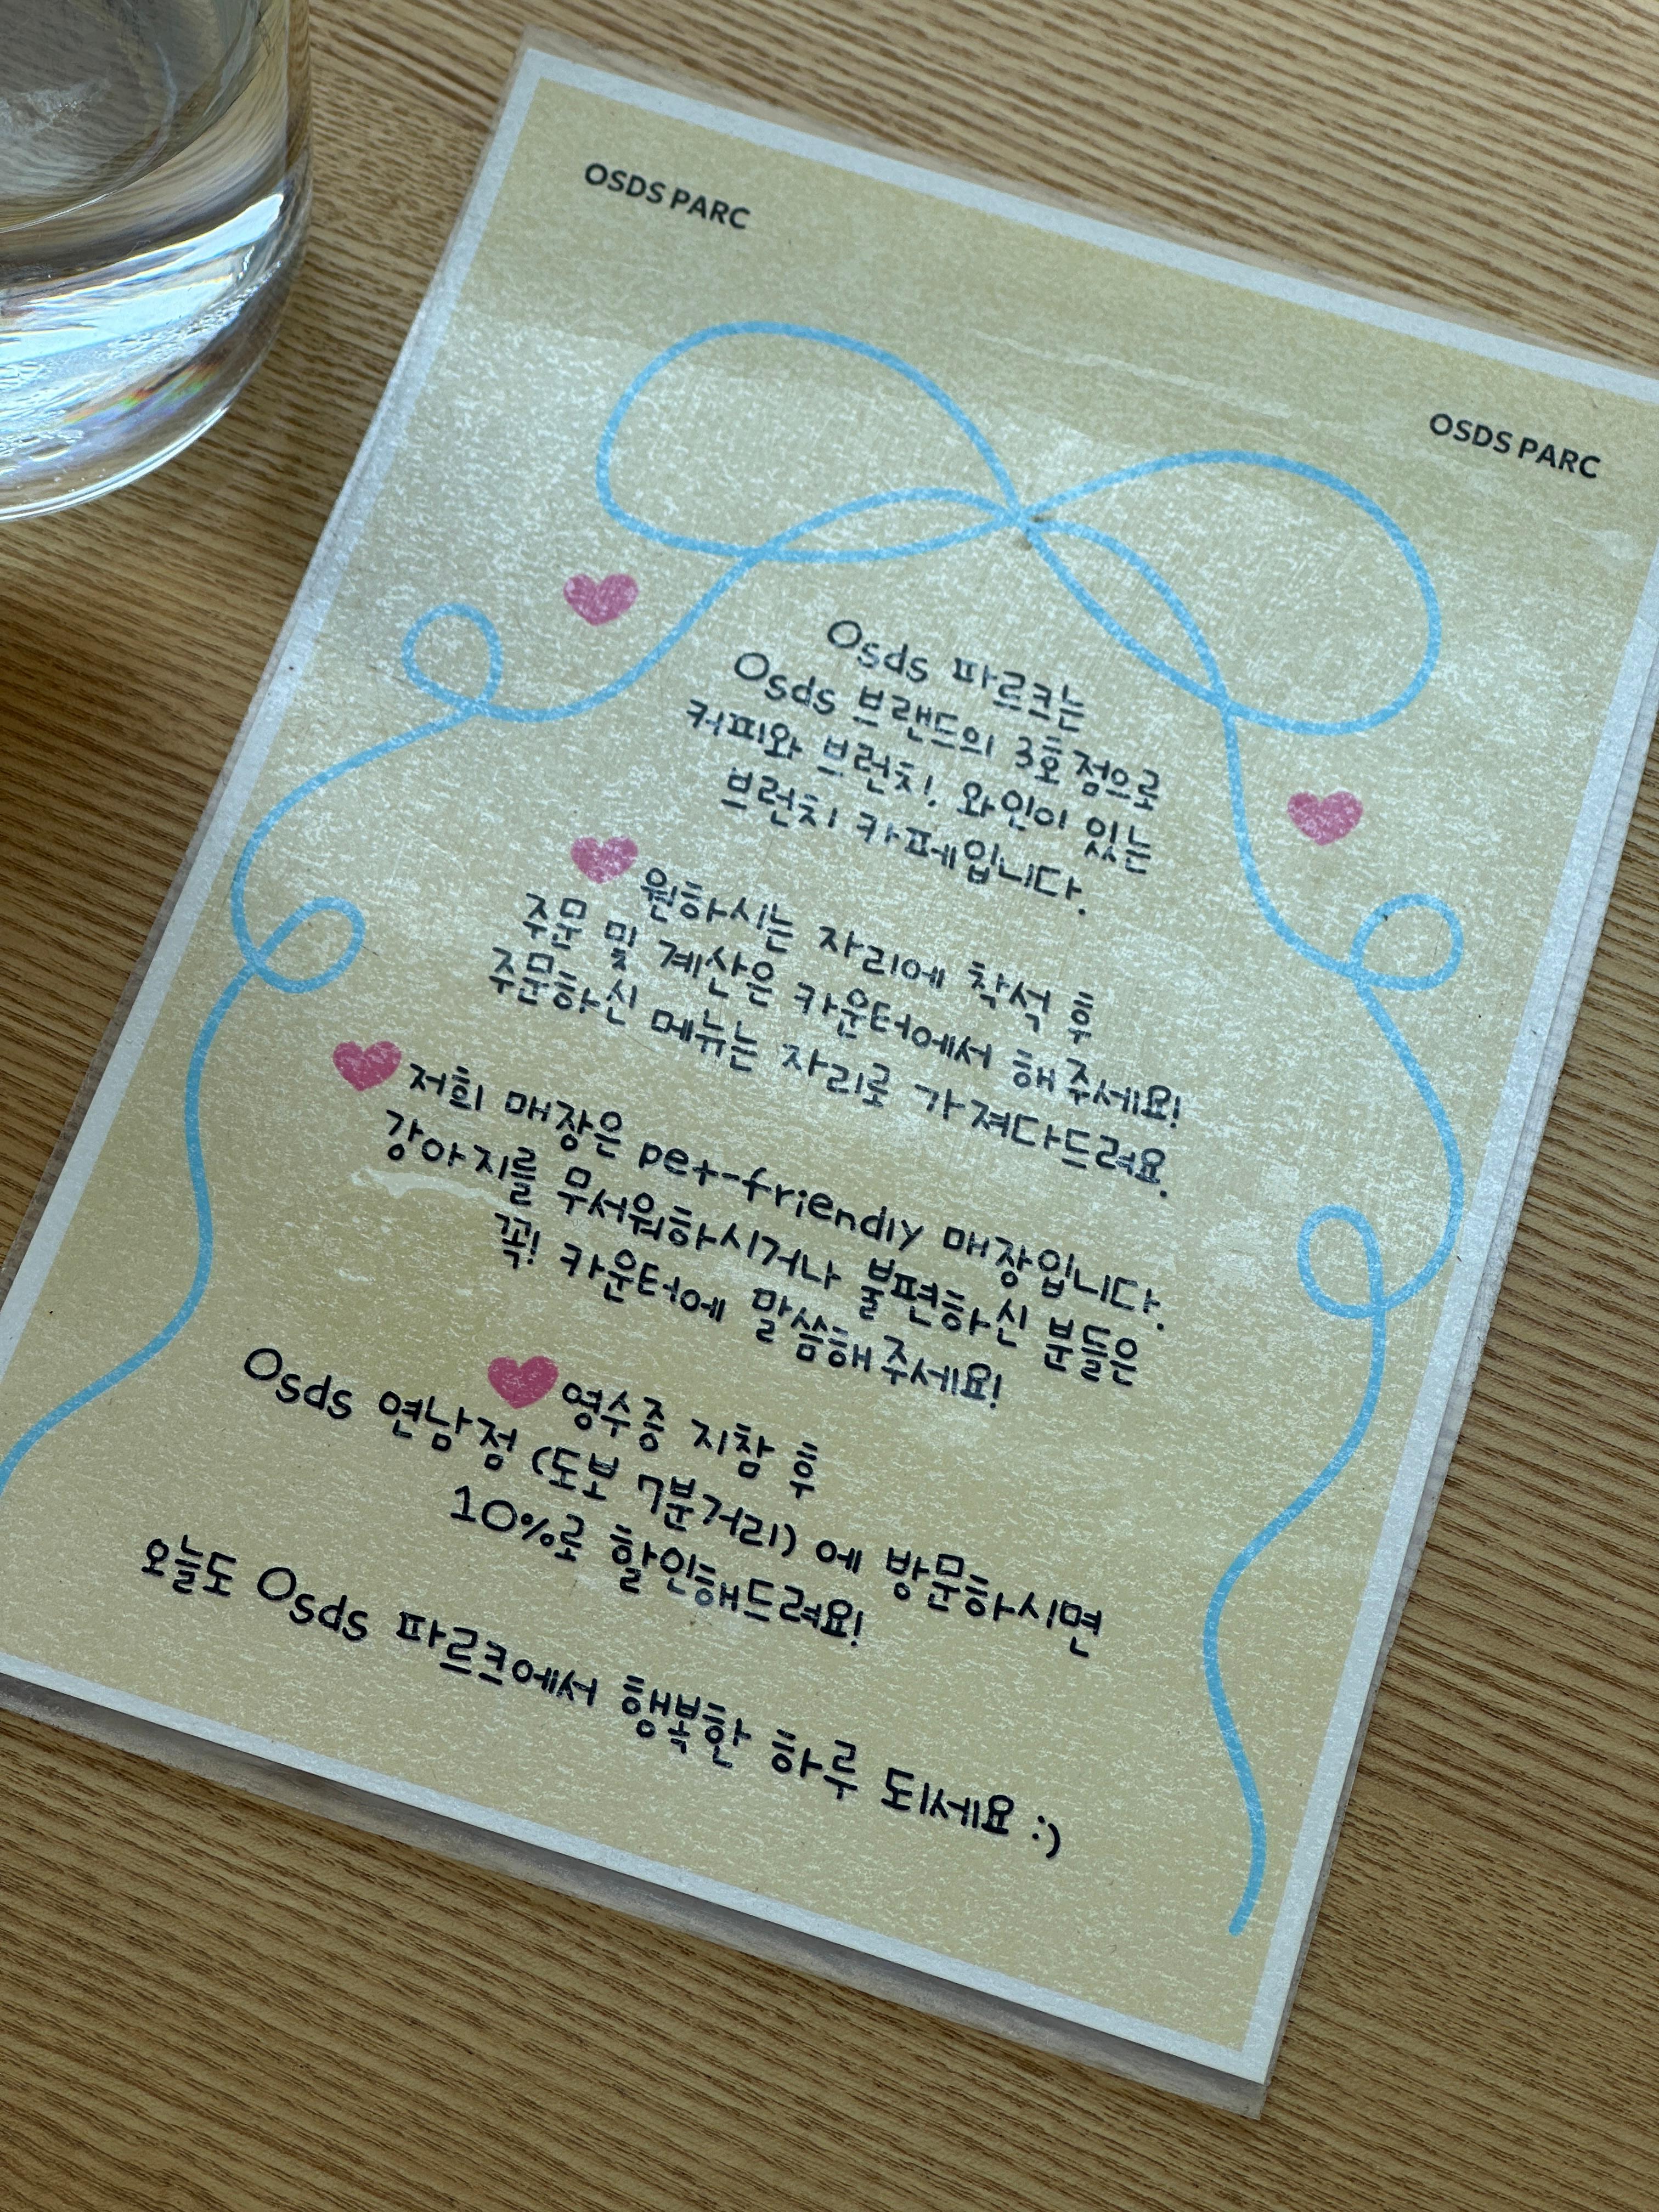 OSDS PARC
OSDS PARC
Osds 파르크는
Osds 브랜드의 3호점으로
커피와 브런치, 와인이 있는
브런치 카페입니다.
원하시는 자리에 착석 후
주문 및 계산은 카운터에서 해주세요!
주문하신 메뉴는 자리로 가져다드려요.
저희 매장은 pet-friendly 매장입니다.
강아지를 무서워하시거나 불편하신 분들은
꼭! 카운터에 말씀해주세요!
영수증 지참 후
Osds 연남점 (도보 7분거리) 에 방문하시면
10%로 할인해드려요!
오늘도 Osds 파르크에서 행복한 하루 되세요 :)